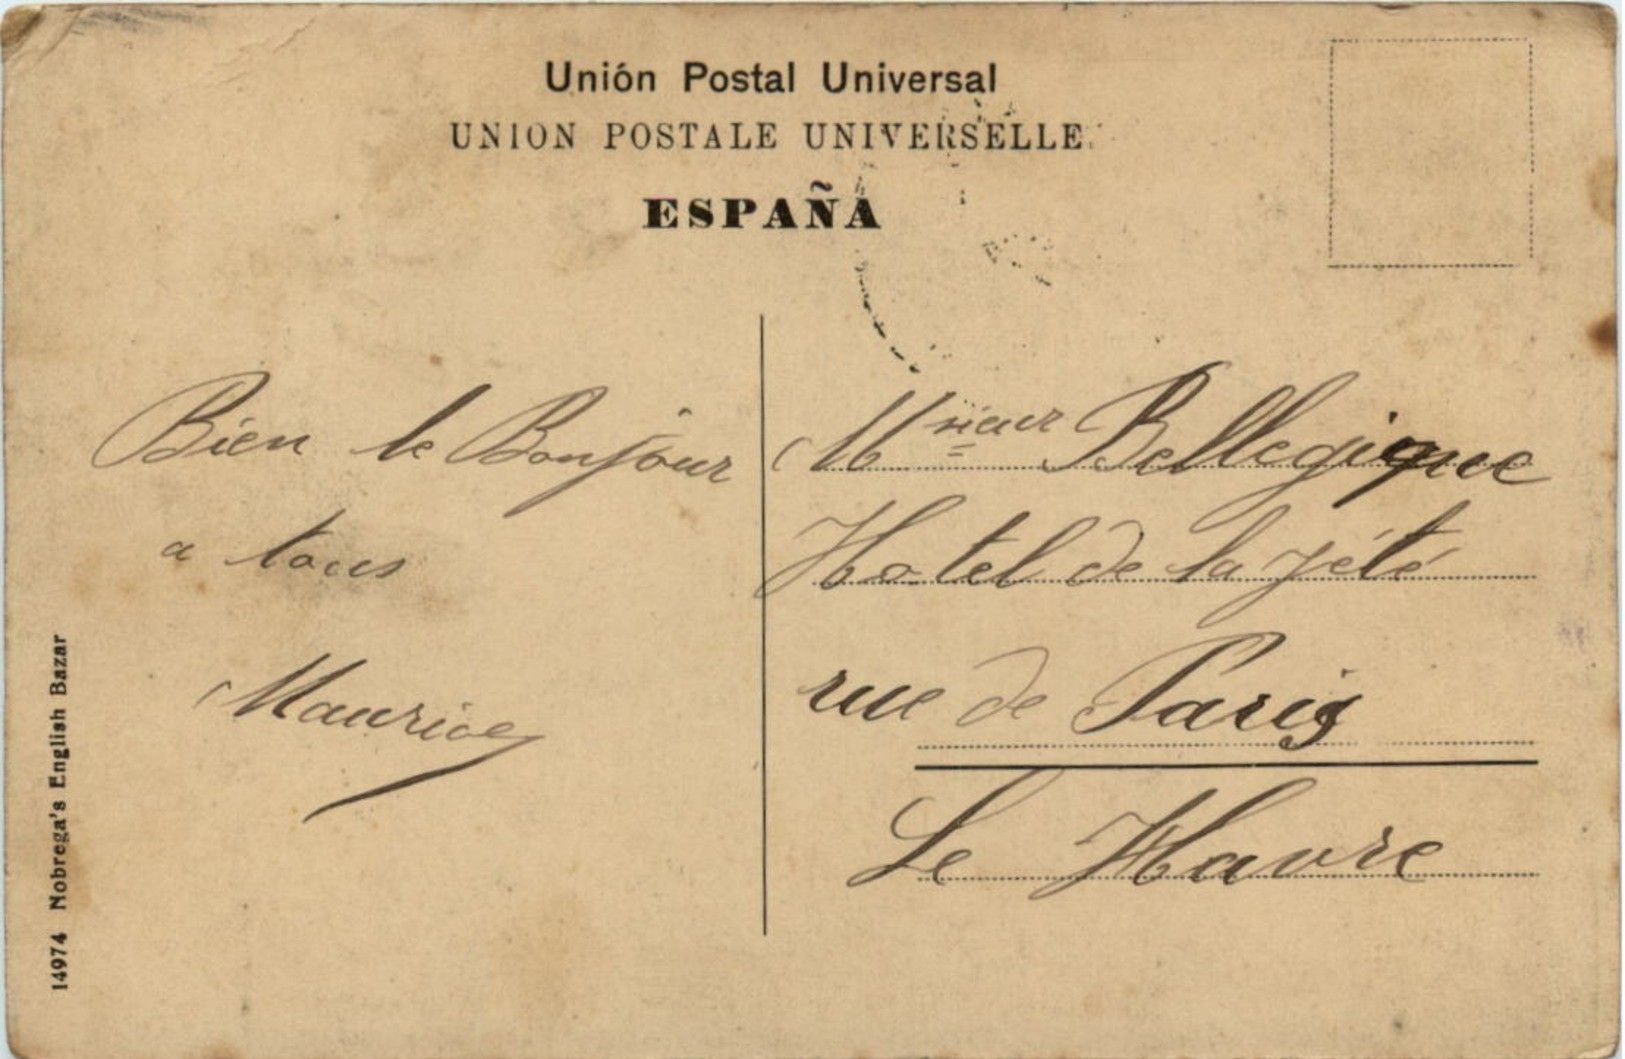 Unión Postal Universal
UNION POSTALE UNIVERSELLE
ESPAÑA
Bien le Bonjour
a tous
Maurice
Msieur Bellegique
Hotel de la Jété
rue de Paris
Le Havre
14974 Nobrega's English Bazar